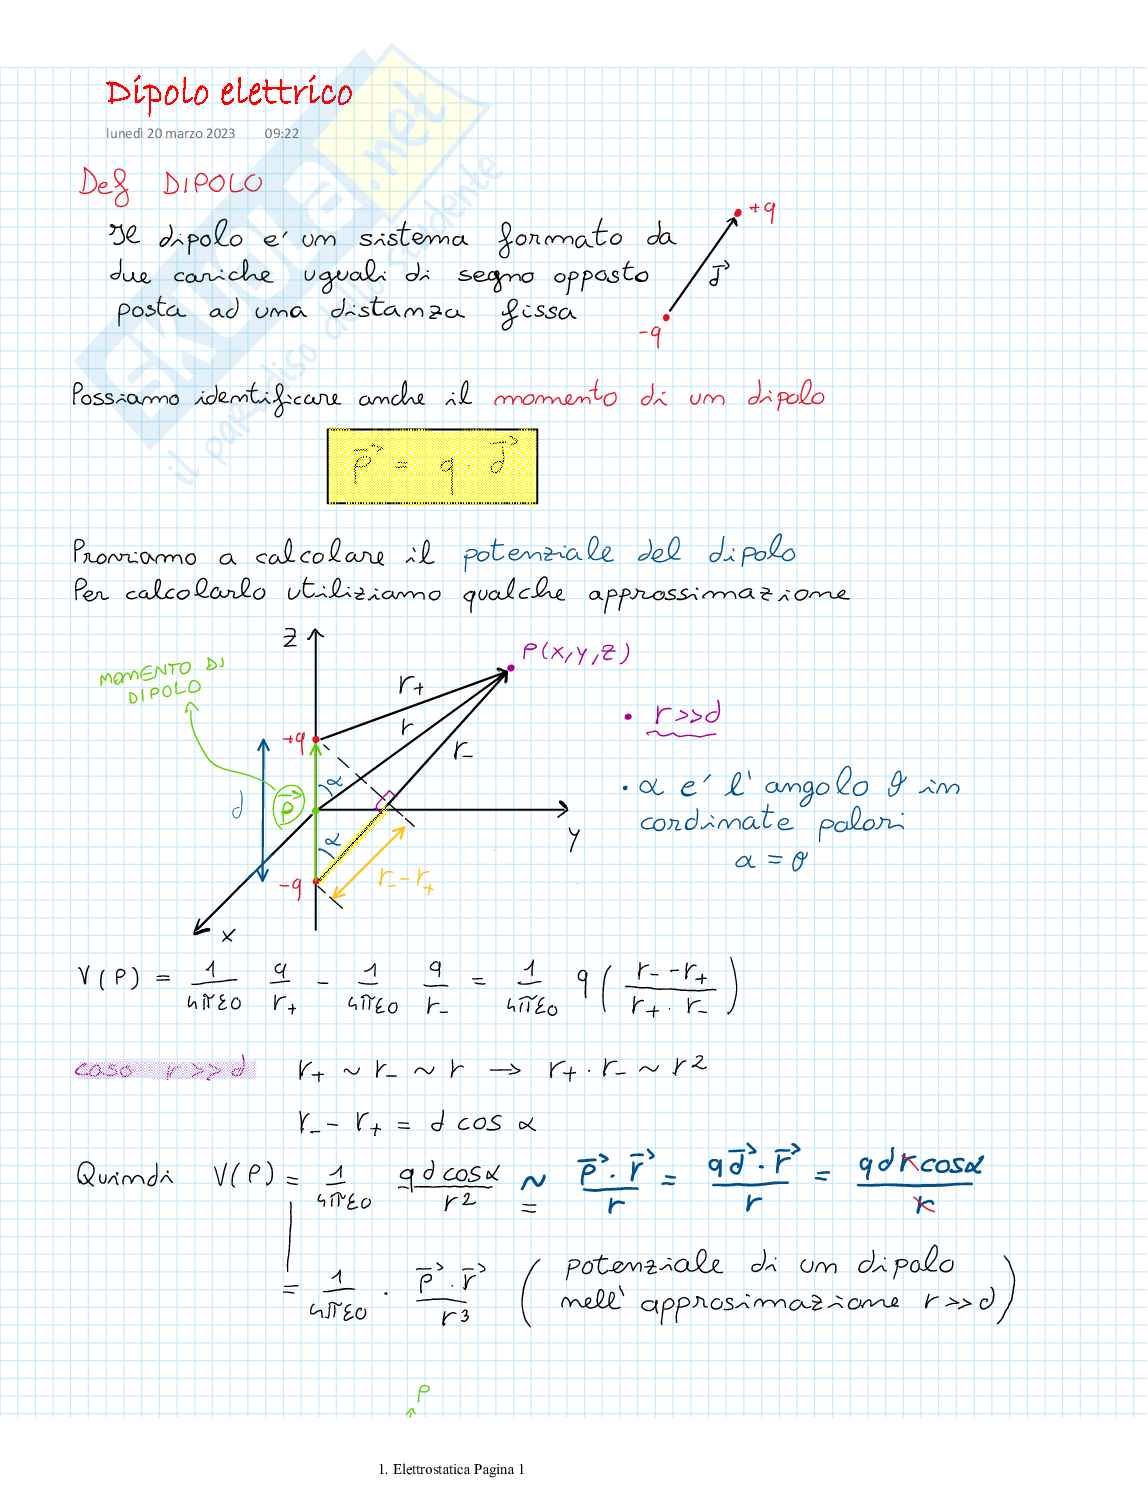 Dipolo elettrico
lunedì 20 marzo 2023 09:22
SKUOLA.net
il paradiso dello studente
Def DIPOLO
Il dipolo e' un sistema formato da
due cariche uguali di segno opposto
posta ad una distanza fissa
+q
d⃗
-q
Possiamo identificare anche il momento di un dipolo
p⃗ = q · d⃗
Proviamo a calcolare il potenziale del dipolo
Per calcolarlo utiliziamo qualche approssimazione
z
P(x,y,z)
MOMENTO DI
DIPOLO
r₊
r
r₋
+q
α
d
p⃗
y
α
-q
r₋-r₊
x
• r>>d
• α e' l'angolo θ in
cordinate polari
α = θ
V(P) = 1/4πε0 q/r₊ - 1/4πε0 q/r₋ = 1/4πε0 q ( r₋-r₊ / r₊·r₋ )
caso r>>d r₊ ~ r₋ ~ r → r₊·r₋ ~ r²
r₋ - r₊ = d cos α
Quindi V(P) = 1/4πε0 qdcosα/r² ≃ p⃗·r⃗/r = qd⃗·r⃗/r = qdrcosα/r
= 1/4πε0 · p⃗·r⃗/r³ ( potenziale di un dipolo
nell' approsimazione r>>d )
P
1. Elettrostatica Pagina 1